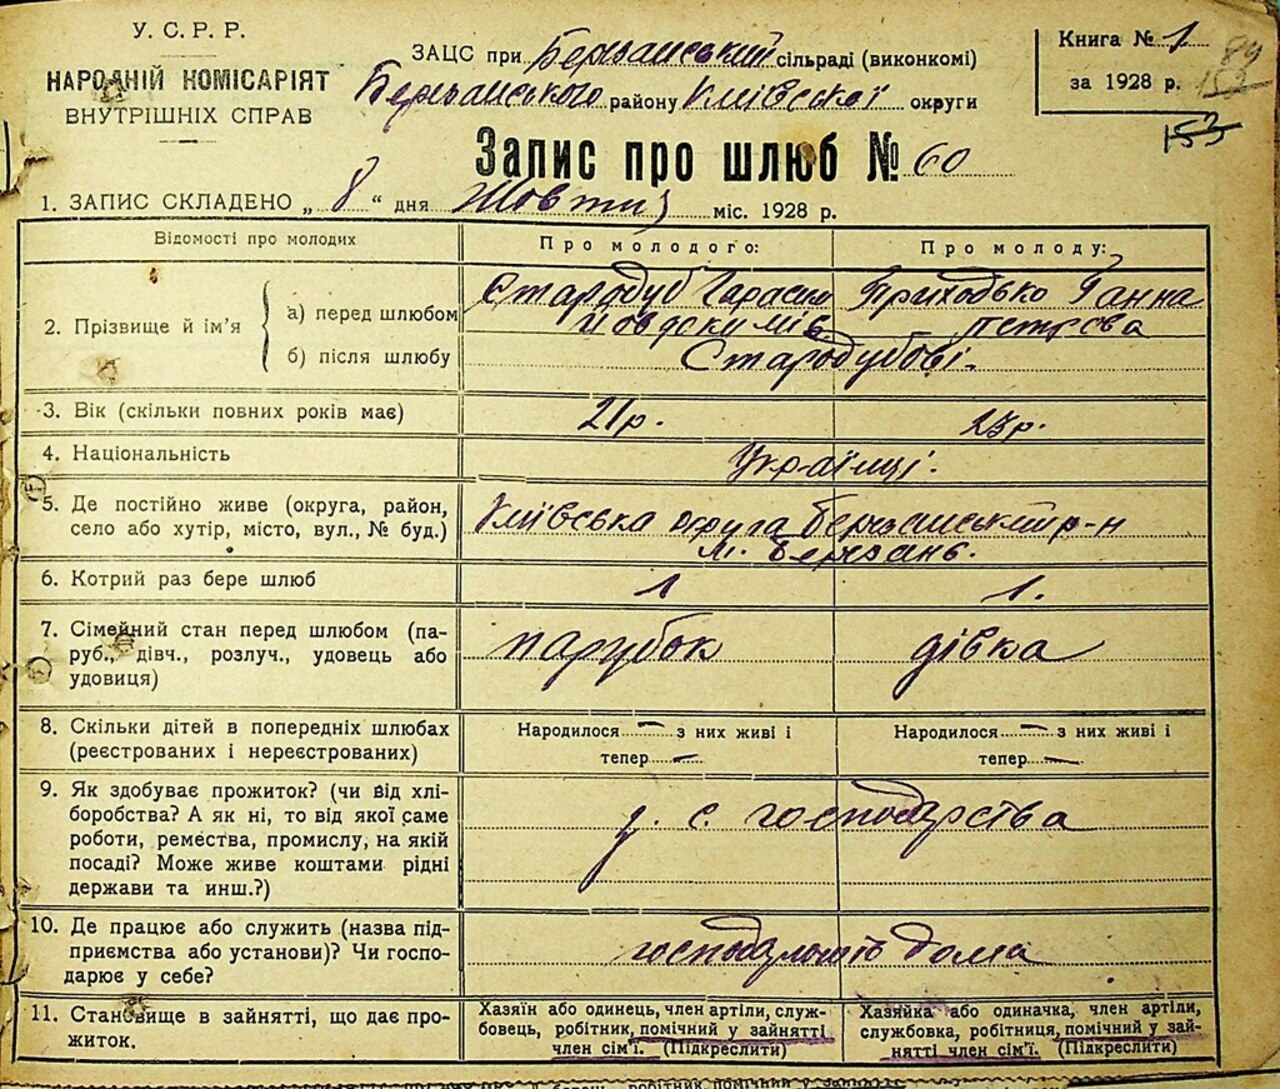 У. С. Р. Р.
НАРОДНІЙ КОМІСАРІЯТ
ВНУТРІШНІХ СПРАВ
ЗАЦС при Березанський сільраді (виконкомі)
Березанського району Київської округи
Книга № 1
за 1928 р.
89
153
Запис про шлюб № 60
1. ЗАПИС СКЛАДЕНО „ 8 “ дня Жовтня міс. 1928 р.
Відомості про молодих
Про молодого:
Про молоду:
2. Прізвище й ім’я
а) перед шлюбом
Стародуб Гарасим
Приходько Ганна
Петрова
б) після шлюбу
Стародубові.
3. Вік (скільки повних років має)
21 р.
23 р.
4. Національність
Українці.
5. Де постійно живе (округа, район,
село або хутір, місто, вул., № буд.)
Київська округа Березанський р-н
м. Березань.
6. Котрий раз бере шлюб
1
1.
7. Сімейний стан перед шлюбом (па-
руб., дівч., розлуч., удовець або
удовиця)
парубок
дівка
8. Скільки дітей в попередніх шлюбах
(реєстрованих і нереєстрованих)
Народилося — з них живі і
тепер —
Народилося — з них живі і
тепер —
9. Як здобуває прожиток? (чи від хлі-
боробства? А як ні, то від якої саме
роботи, ремества, промислу, на якій
посаді? Може живе коштами рідні
держави та инш.?)
з. с. господарства
10. Де працює або служить (назва під-
приємства або установи)? Чи госпо-
дарює у себе?
дома
11. Становище в зайнятті, що дає про-
житок.
Хазяїн або одинець, член артіли, служ-
бовець, робітник, помічний у зайнятті
член сім’ї. (Підкреслити)
Хазяйка або одиначка, член артіли,
службовка, робітниця, помічний у зай-
нятті член сім’ї. (Підкреслити)